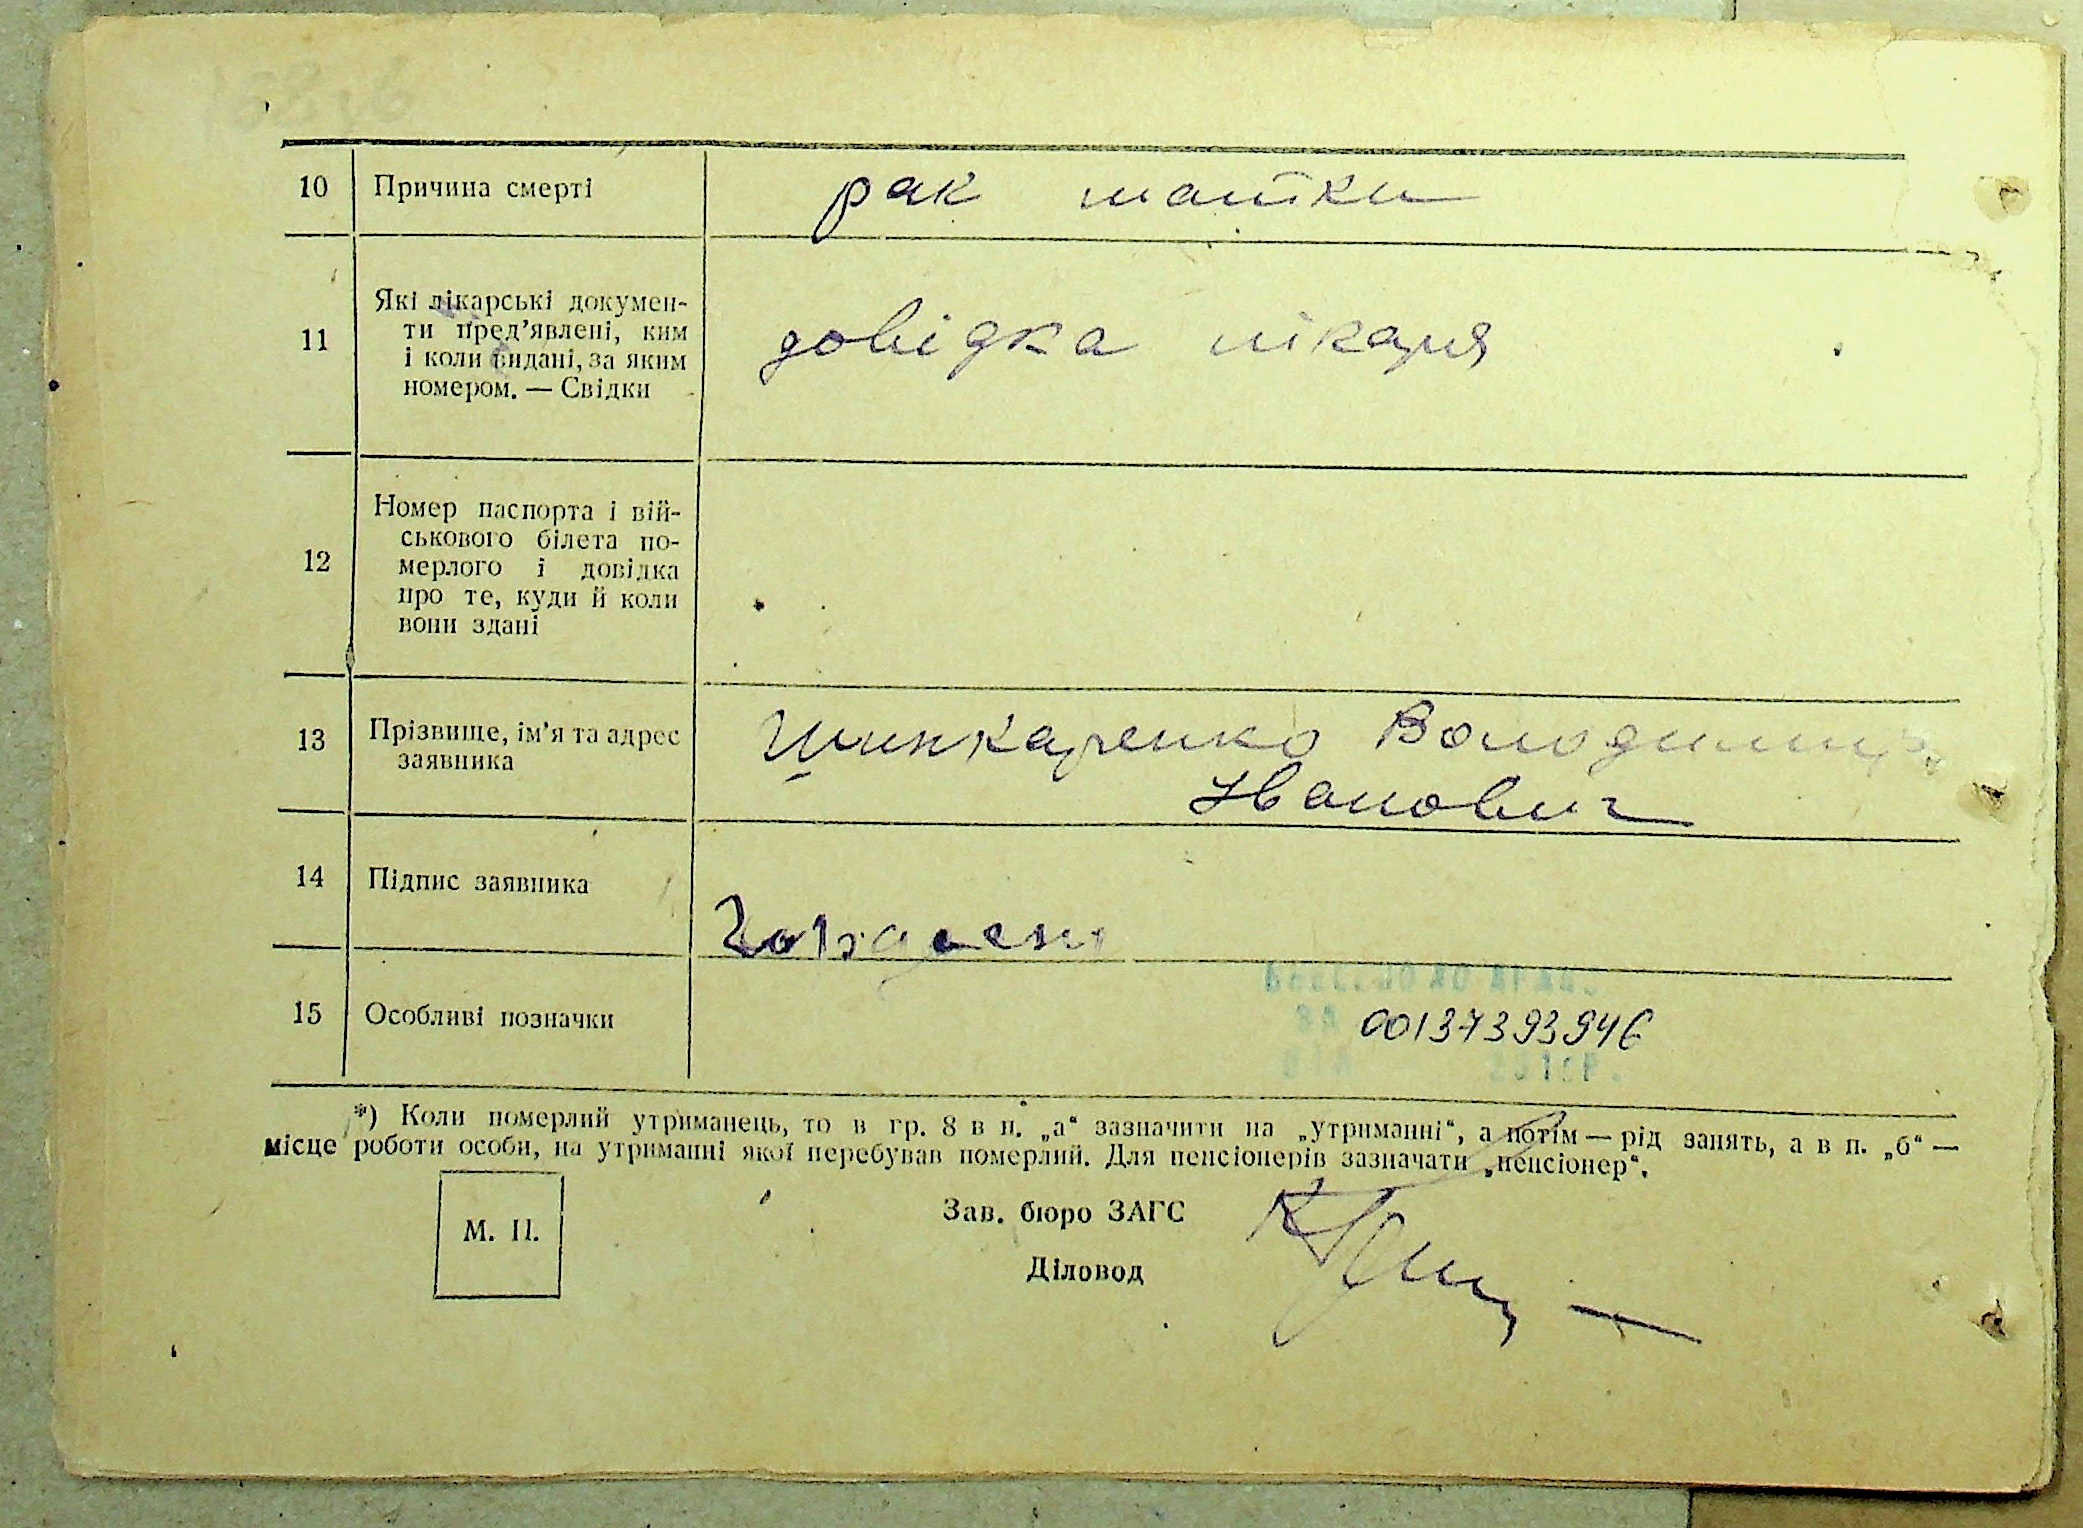 10 Причина смерті рак матки
11 Які лікарські докумен-
ти пред’явлені, ким
і коли видані, за яким
номером. — Свідки
довідка лікаря
12 Номер паспорта і вій-
ськового білета по-
мерлого і довідка
про те, куди й коли
вони здані
13 Прізвище, ім’я та адрес
заявника
Шинкаренко Володимир
Іванович
14 Підпис заявника
15 Особливі позначки 00137393946
*) Коли померлий утриманець, то в гр. 8 в п. „а“ зазначити на „утриманні“, а потім — рід занять, а в п. „б“ —
місце роботи особи, на утриманні якої перебував померлий. Для пенсіонерів зазначати „пенсіонер“.
М. П.
Зав. бюро ЗАГС
Діловод